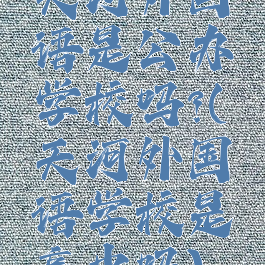 天河外国
语是公办
学校吗?(
天河外国
语学校是